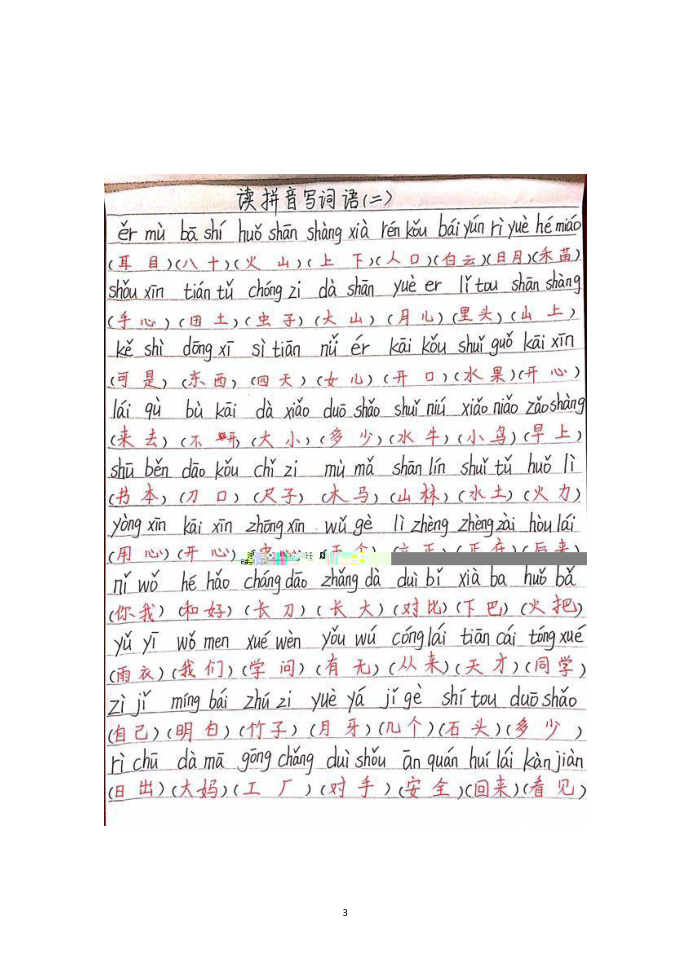 读拼音写词语(二)
ěr mù bā shí huǒ shān shàng xià rén kǒu bái yún rì yuè hé miáo
(耳目)(八十)(火山)(上下)(人口)(白云)(日月)(禾苗)
shǒu xīn tián tǔ chóng zi dà shān yuè er lǐ tou shān shàng
(手心)(田土)(虫子)(大山)(月儿)(里头)(山上)
kě shì dōng xī sì tiān nǚ ér kāi kǒu shuǐ guǒ kāi xīn
(可是)(东西)(四天)(女儿)(开口)(水果)(开心)
lái qù bù kāi dà xiǎo duō shǎo shuǐ niú xiǎo niǎo zǎo shàng
(来去)(不开)(大小)(多少)(水牛)(小鸟)(早上)
shū běn dāo kǒu chǐ zi mù mǎ shān lín shuǐ tǔ huǒ lì
(书本)(刀口)(尺子)(木马)(山林)(水土)(火力)
yòng xīn kāi xīn zhōng xīn wǔ gè lì zhèng zhèng zài hòu lái
(用心)(开心)
nǐ wǒ hé hǎo cháng dāo zhǎng dà duì bǐ xià ba huǒ bǎ
(你我)(和好)(长刀)(长大)(对比)(下巴)(火把)
yǔ yī wǒ men xué wèn yǒu wú cóng lái tiān cái tóng xué
(雨衣)(我们)(学问)(有无)(从来)(天才)(同学)
zì jǐ míng bái zhú zi yuè yá jǐ gè shí tou duō shǎo
(自己)(明白)(竹子)(月牙)(几个)(石头)(多少)
rì chū dà mā gōng chǎng duì shǒu ān quán huí lái kàn jiàn
(日出)(大妈)(工厂)(对手)(安全)(回来)(看见)
3